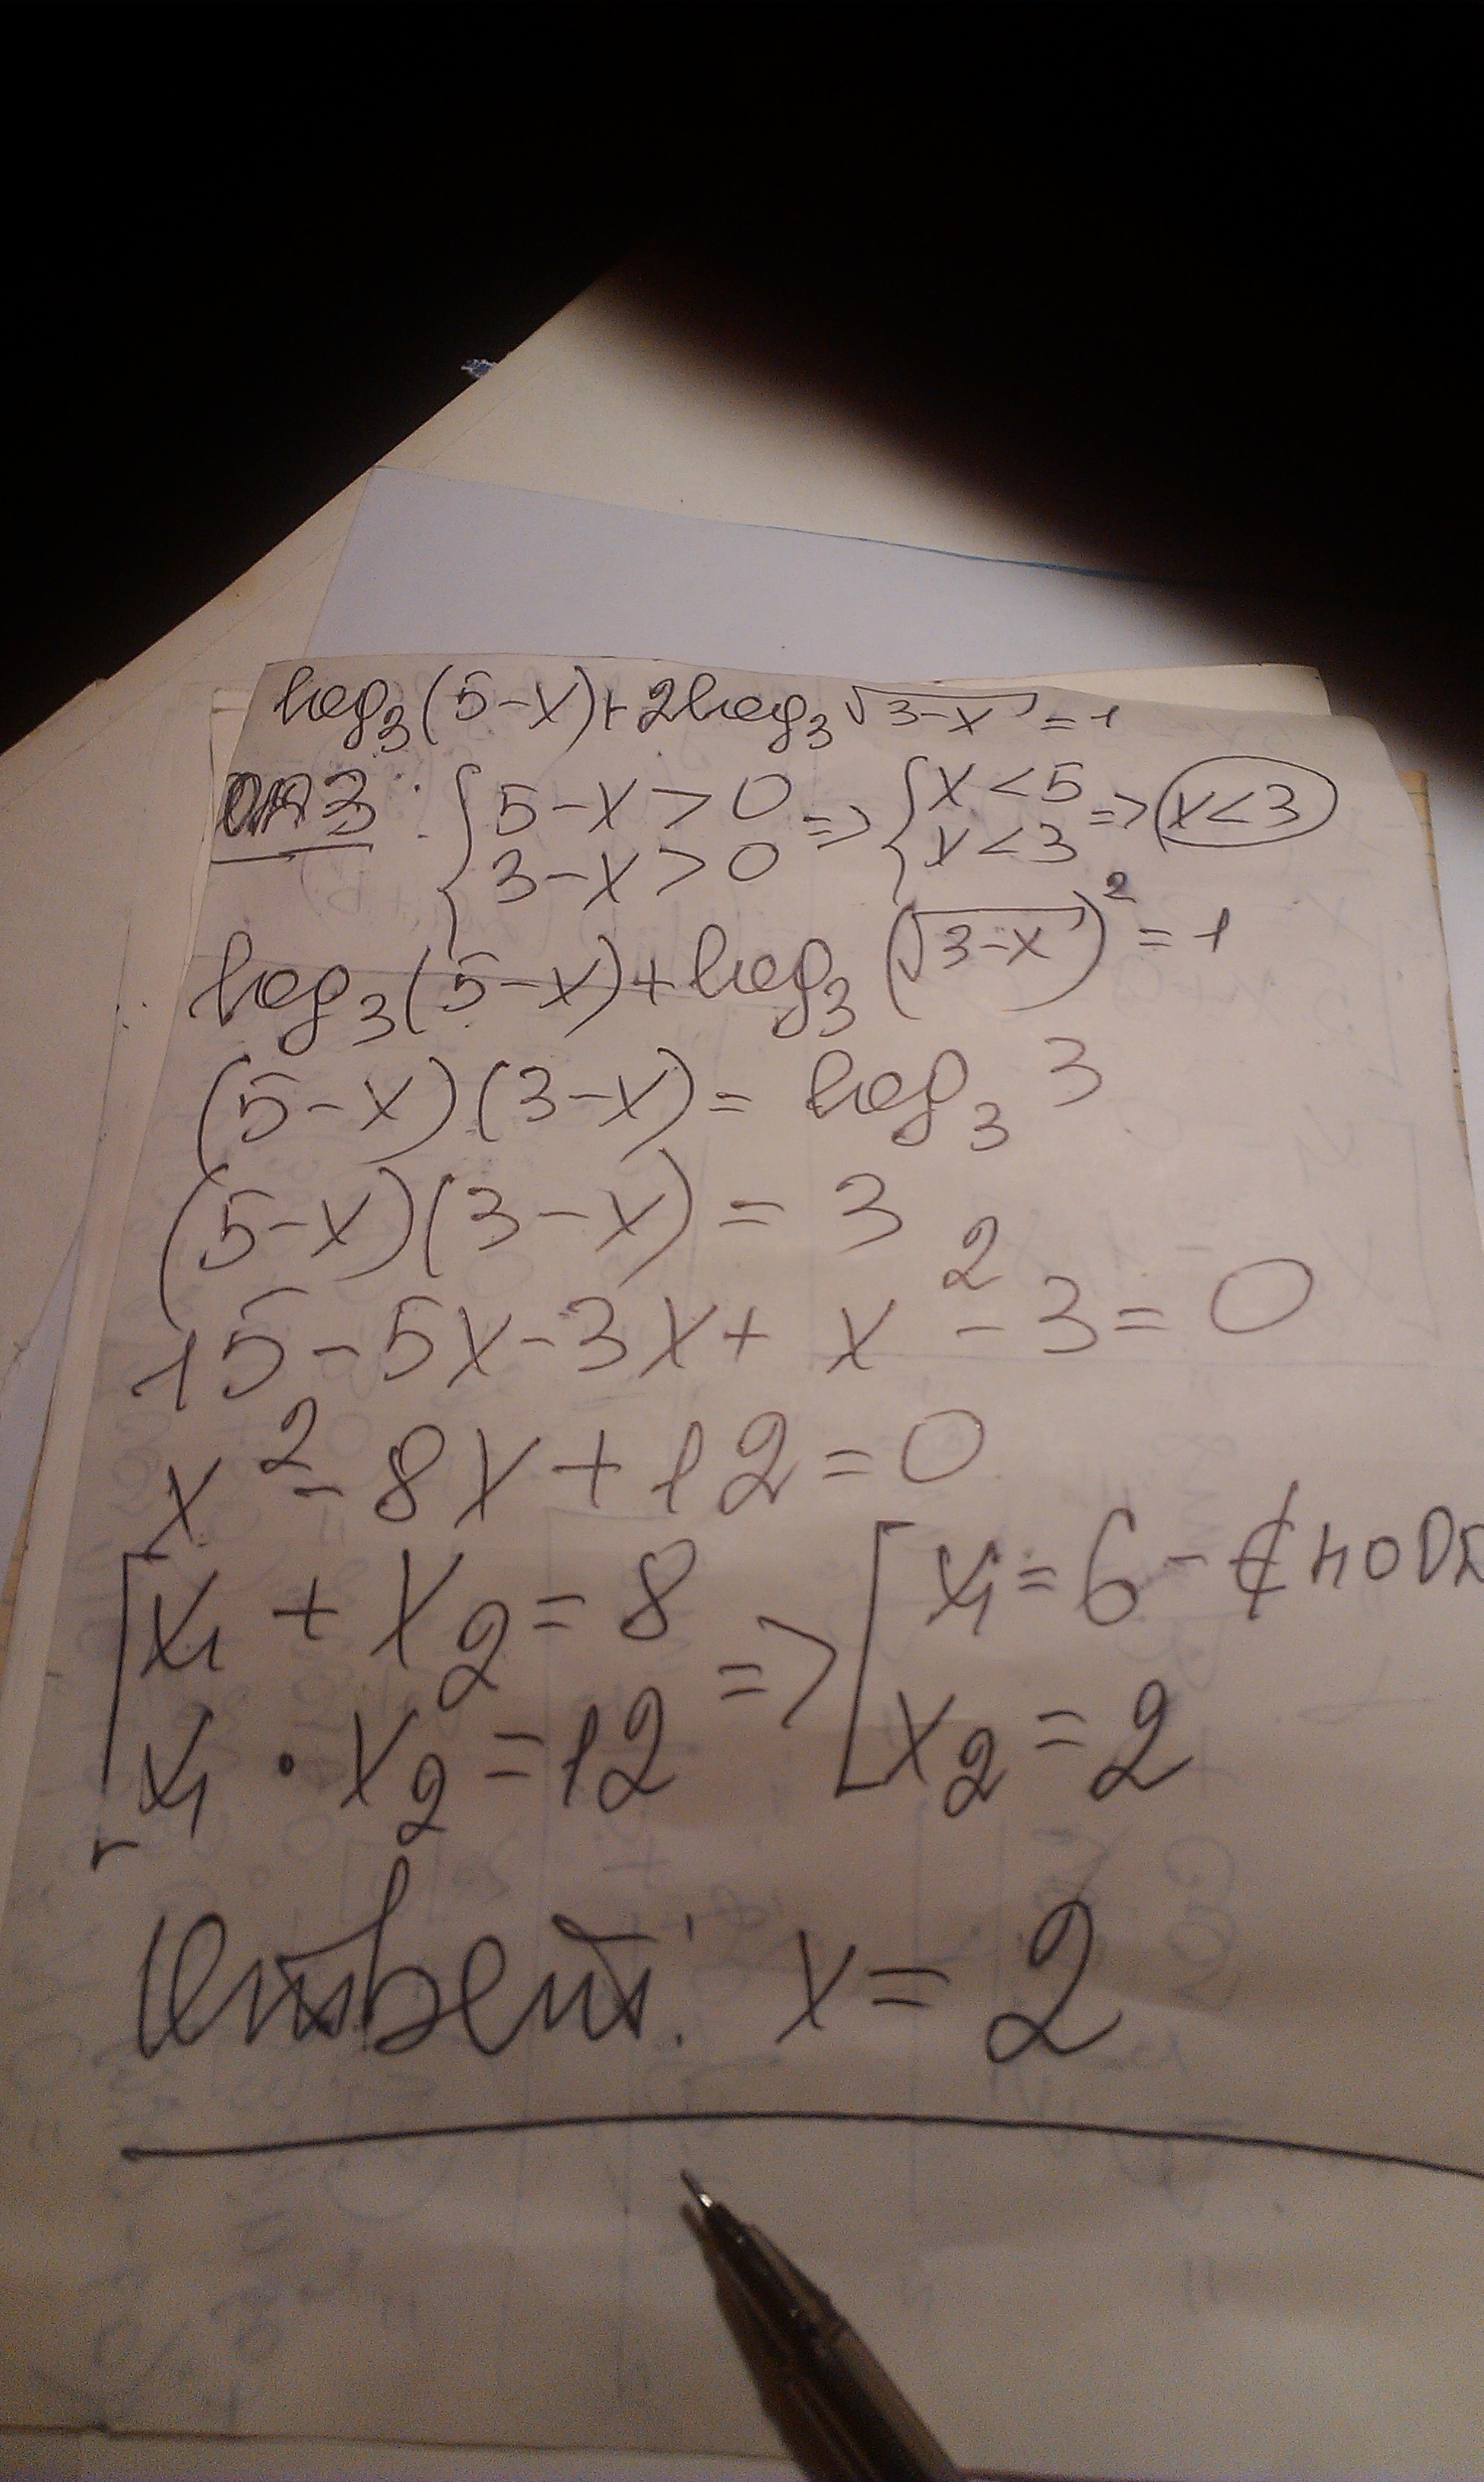 log₃(5-x)+2log₃√(3-x)=1
ОДЗ: {5-x>0 => {x<5 => x<3
{3-x>0 {x<3
log₃(5-x)+log₃(√(3-x))²=1
(5-x)(3-x)= log₃ 3
(5-x)(3-x)=3
15-5x-3x+x²-3=0
x²-8x+12=0
[x₁+x₂=8 => [x₁=6-∉ по ОДЗ
[x₁·x₂=12 [x₂=2
Ответ: x=2